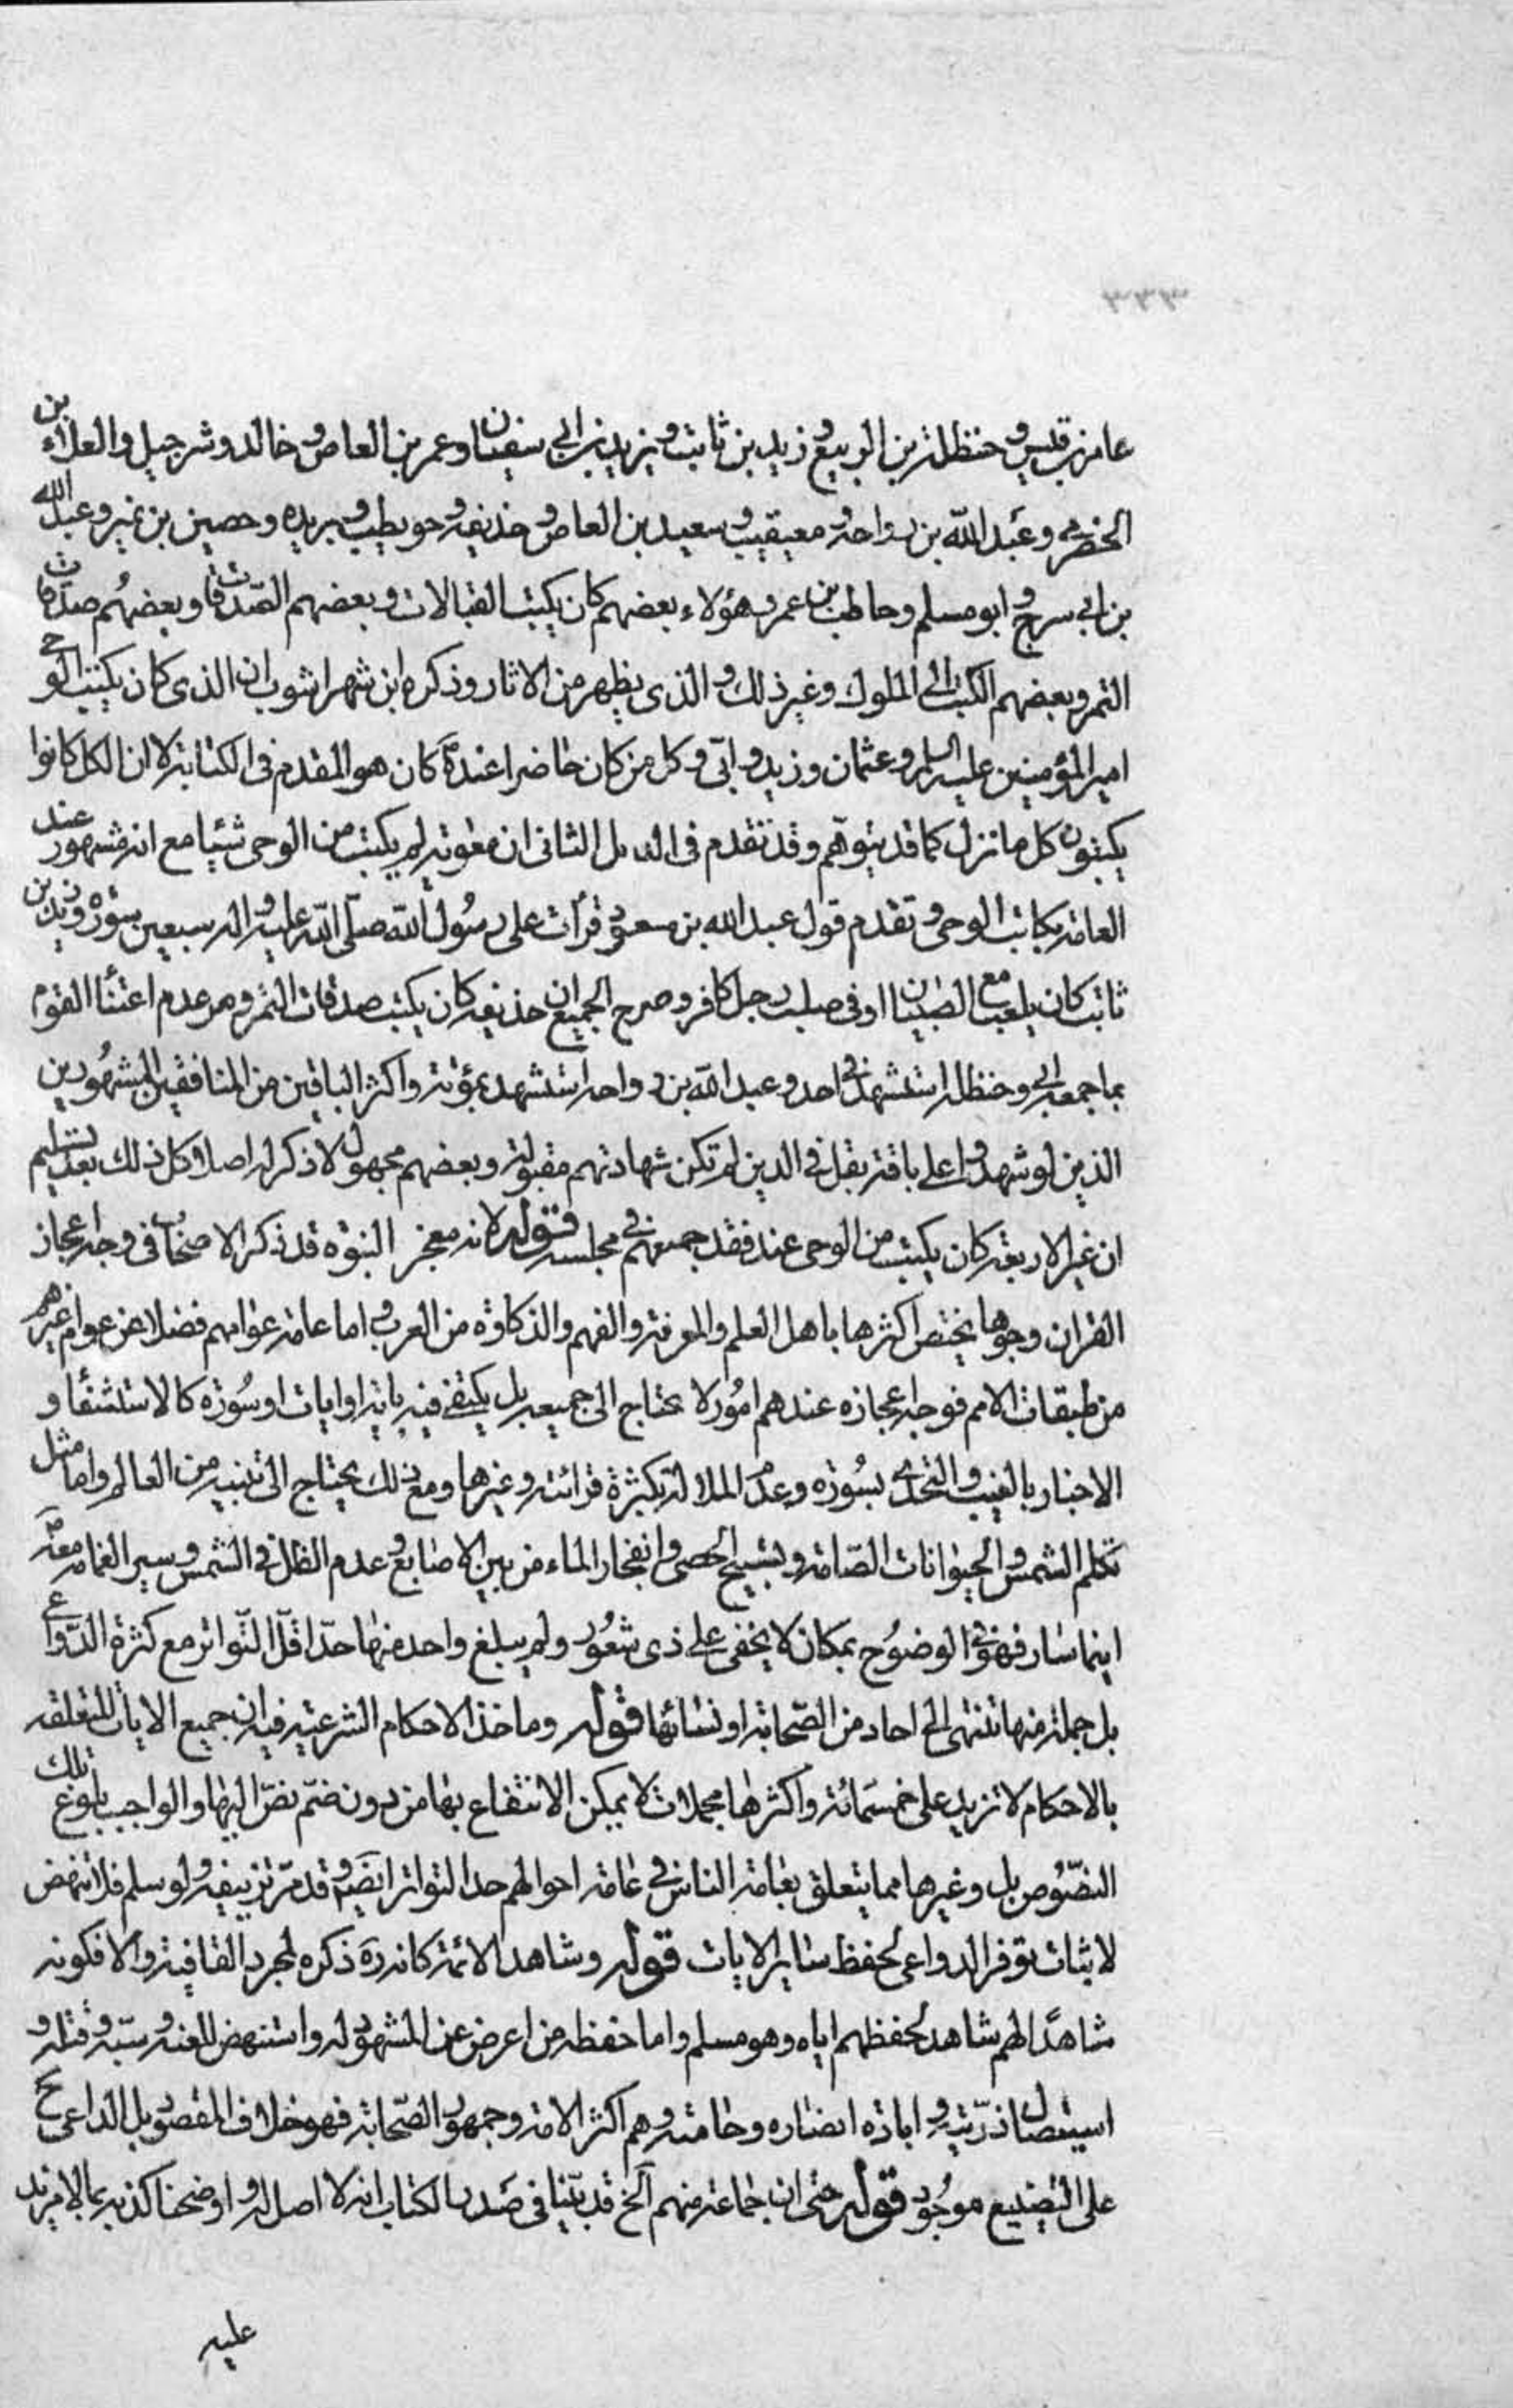 ٣٣٣
عامر بن قيس و حنظلة بن الربيع و زيد بن ثابت و يزيد بن ابي سفيان و عمر بن العاص و خالد و شرجيل والعلاء بن
الحضرمي و عبد الله بن رواحة و معيقيب و سعيد بن العاص و حذيفة و حويطب و بريده و حصين بن نمير و عبد الله
بن ابي سرح و ابو مسلم و حاطب بن عمر و هؤلاء بعضهم كان يكتب القبالات و بعضهم الصدقات و بعضهم صدقات
التمر و بعضهم الكتب الى الملوك و غير ذلك و الذى يظهر من الاثار و ذكره ابن شهراشوب ان الذى كان يكتب الوحي
امير المؤمنين عليه السلم و عثمان و زيد و ابى و كل من كان حاضرا عنده كان هو المقدم فى الكتابة لا ان الكل كانوا
يكتبون كل ما نزل كما قد يتوهم و قد تقدم فى الدليل الثانى ان معوية لم يكتب من الوحى شيئا مع انه مشهور عند
العامة بكاتب الوحى و تقدم قول عبد الله بن مسعود قرأت على رسول الله صلى الله عليه و اله سبعين سورة و زيد بن
ثابت كان يلعب مع الصبيان او فى صلب رجل كافر و صرح الجميع ان حذيفة كان يكتب صدقات التمر و مر عدم اعتناء القوم
بما جمعه ابي و حنظلة استشهد فى احد و عبد الله بن رواحه استشهد بمؤتة و اكثر الباقين من المنافقين المشهورين
الذين لو شهدوا على باقة بقل فى الدين لم تكن شهادتهم مقبولة و بعضهم مجهول لا ذكر له اصلا و كل ذلك بعد تسليم
ان غير الاربعة كان يكتب من الوحى عند فقد جميعهم فى مجلسه قوله لانه معجز النبوة قد ذكر الاصحاب فى وجه اعجاز
القران وجوها يختص اكثرها باهل العلم والمعرفة والفهم والذكاوة من العرب و اما عامة عوامهم فضلا عن عوام غيرهم
من طبقات الامم فوجه اعجازه عندهم امور لا يحتاج الى جميعه بل يكتفى فيه باية او ايات او سورة كالاستشفاء و
الاخبار بالغيب و التحدى بسورة و عدم الملالة بكثرة قرائته و غيرها و مع ذلك يحتاج الى تنبيه من العالم و اما مثل
تكلم الشمس و الحيوانات الصامتة و تسبيح الحصى و انفجار الماء من بين الاصابع و عدم الظل فى الشمس و سير الغمامة معه
اينما سار فهو فى الوضوح بمكان لا يخفى على ذى شعور و لم يبلغ واحد منها حد اقل التواتر مع كثرة الدواعي
بل جملة منها تنتهى الى احاد من الصحابة او نسائها قوله و ماخذ الاحكام الشرعية فيه ان جميع الايات المتعلقه
بالاحكام لا تزيد على خمسمائة و اكثرها مجملات لا يمكن الانتفاع بها من دون ضم نص اليها و الواجب بلوغ تلك
النصوص بل و غيرها مما يتعلق بعامة الناس فى عامة احوالهم حد التواتر ايضا و قد مر تزييفه و لو سلم فلا ينهض
لاثبات توفر الدواعى لحفظ ساير الايات قوله و شاهد الائمة كانه ره ذكره لمجرد القافية و الا فكونه
شاهدا لهم شاهد لحفظهم اياه و هو مسلم و اما حفظه من اعرض عن المشهود له و استنهض للعنه و سبه و قتله و
استيصال ذريته و ابادة انصاره و حامته و هم اكثر الامة و جمهور الصحابة فهو خلاف المقصود بل الداعى ح
على التضييع موجود قوله حتى ان جماعة منهم الخ قد بينا فى صدر الكتاب انه لا اصل له و اوضحنا كذبه بما لا مزيد
عليه